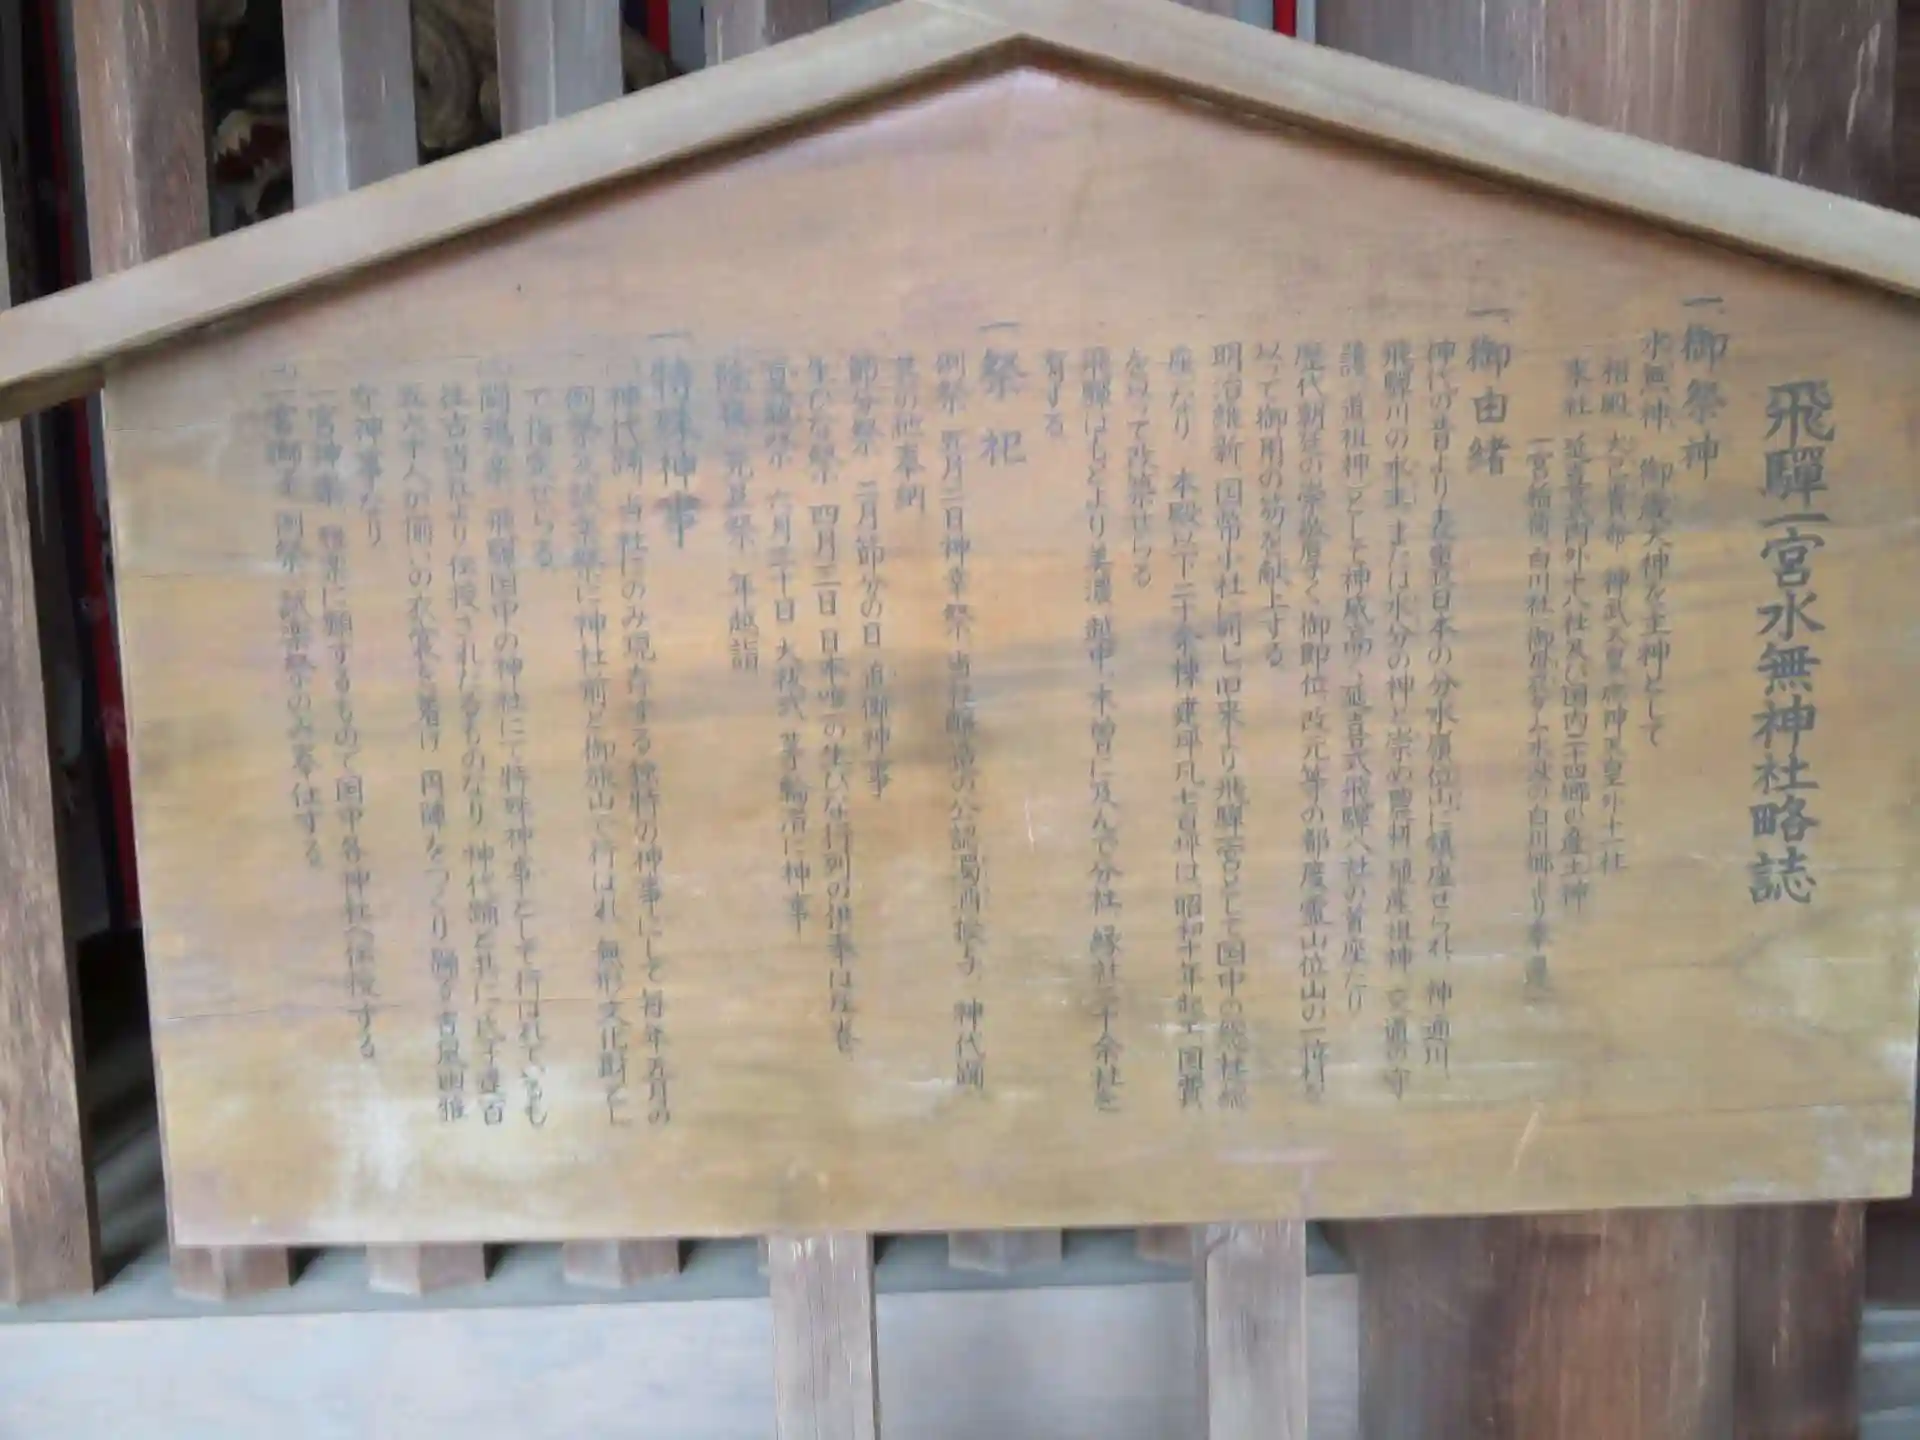 飛驒一宮水無神社略誌
一、御祭神
水無神 御歳大神を主神として
相殿 大己貴命 神武天皇 応神天皇外十一社
末社 延喜式内外十八社及び国内二十四郷の産土神
一宮稲荷 白川社(御母衣ダム水没の白川郷より奉遷)
一、御由緒
神代の昔より表裏日本の分水嶺位山に鎮座せられ、神通川、
飛驒川の水主、または水分の神と崇め農耕、殖産祖神、交通の守
護(道祖神)として神威高く、延喜式飛驒八社の首座たり
歴代朝廷の崇敬厚く、御即位、改元等の都度霊山位山の一位材を
以って御用の笏を献上する
明治維新、国幣小社に列し旧来より飛驒一宮として国中の総社総
座なり、本殿以下二十余棟建坪凡七百坪は、昭和十年起工国費
を以って改築せらる
飛驒はもとより美濃、越中、木曽に及んで分社、縁社二十余社を
有する
一、祭祀
例祭 五月二日神幸祭、当社醸造の公認濁酒授与、神代踊、
其の他奉納
節分祭 二月節分の日 追儺神事
生びな祭 四月三日 日本唯一の生びな行列の供奉は圧巻
夏越祭 六月三十日 大祓式、茅輪潜に神事
除夜、元旦祭 年越詣
一、特殊神事
神代踊 当社にのみ現存する独特の神事にして毎年五月の
例祭及試楽祭に神社前と御旅山で行はれ、無形文化財とし
て指定せらる
闘鶏楽 飛驒国中の神社にて特殊神事として行はれているも
往古当社より伝授されたるものなり、神代踊と共に氏子達百
五六十人が揃いの衣裳を着け、円陣をつくり踊る古風幽雅
な神事なり
一宮神楽 雅楽に類するもので国中各神社へ伝授する
一宮獅子 例祭、試楽祭のみ奉仕する